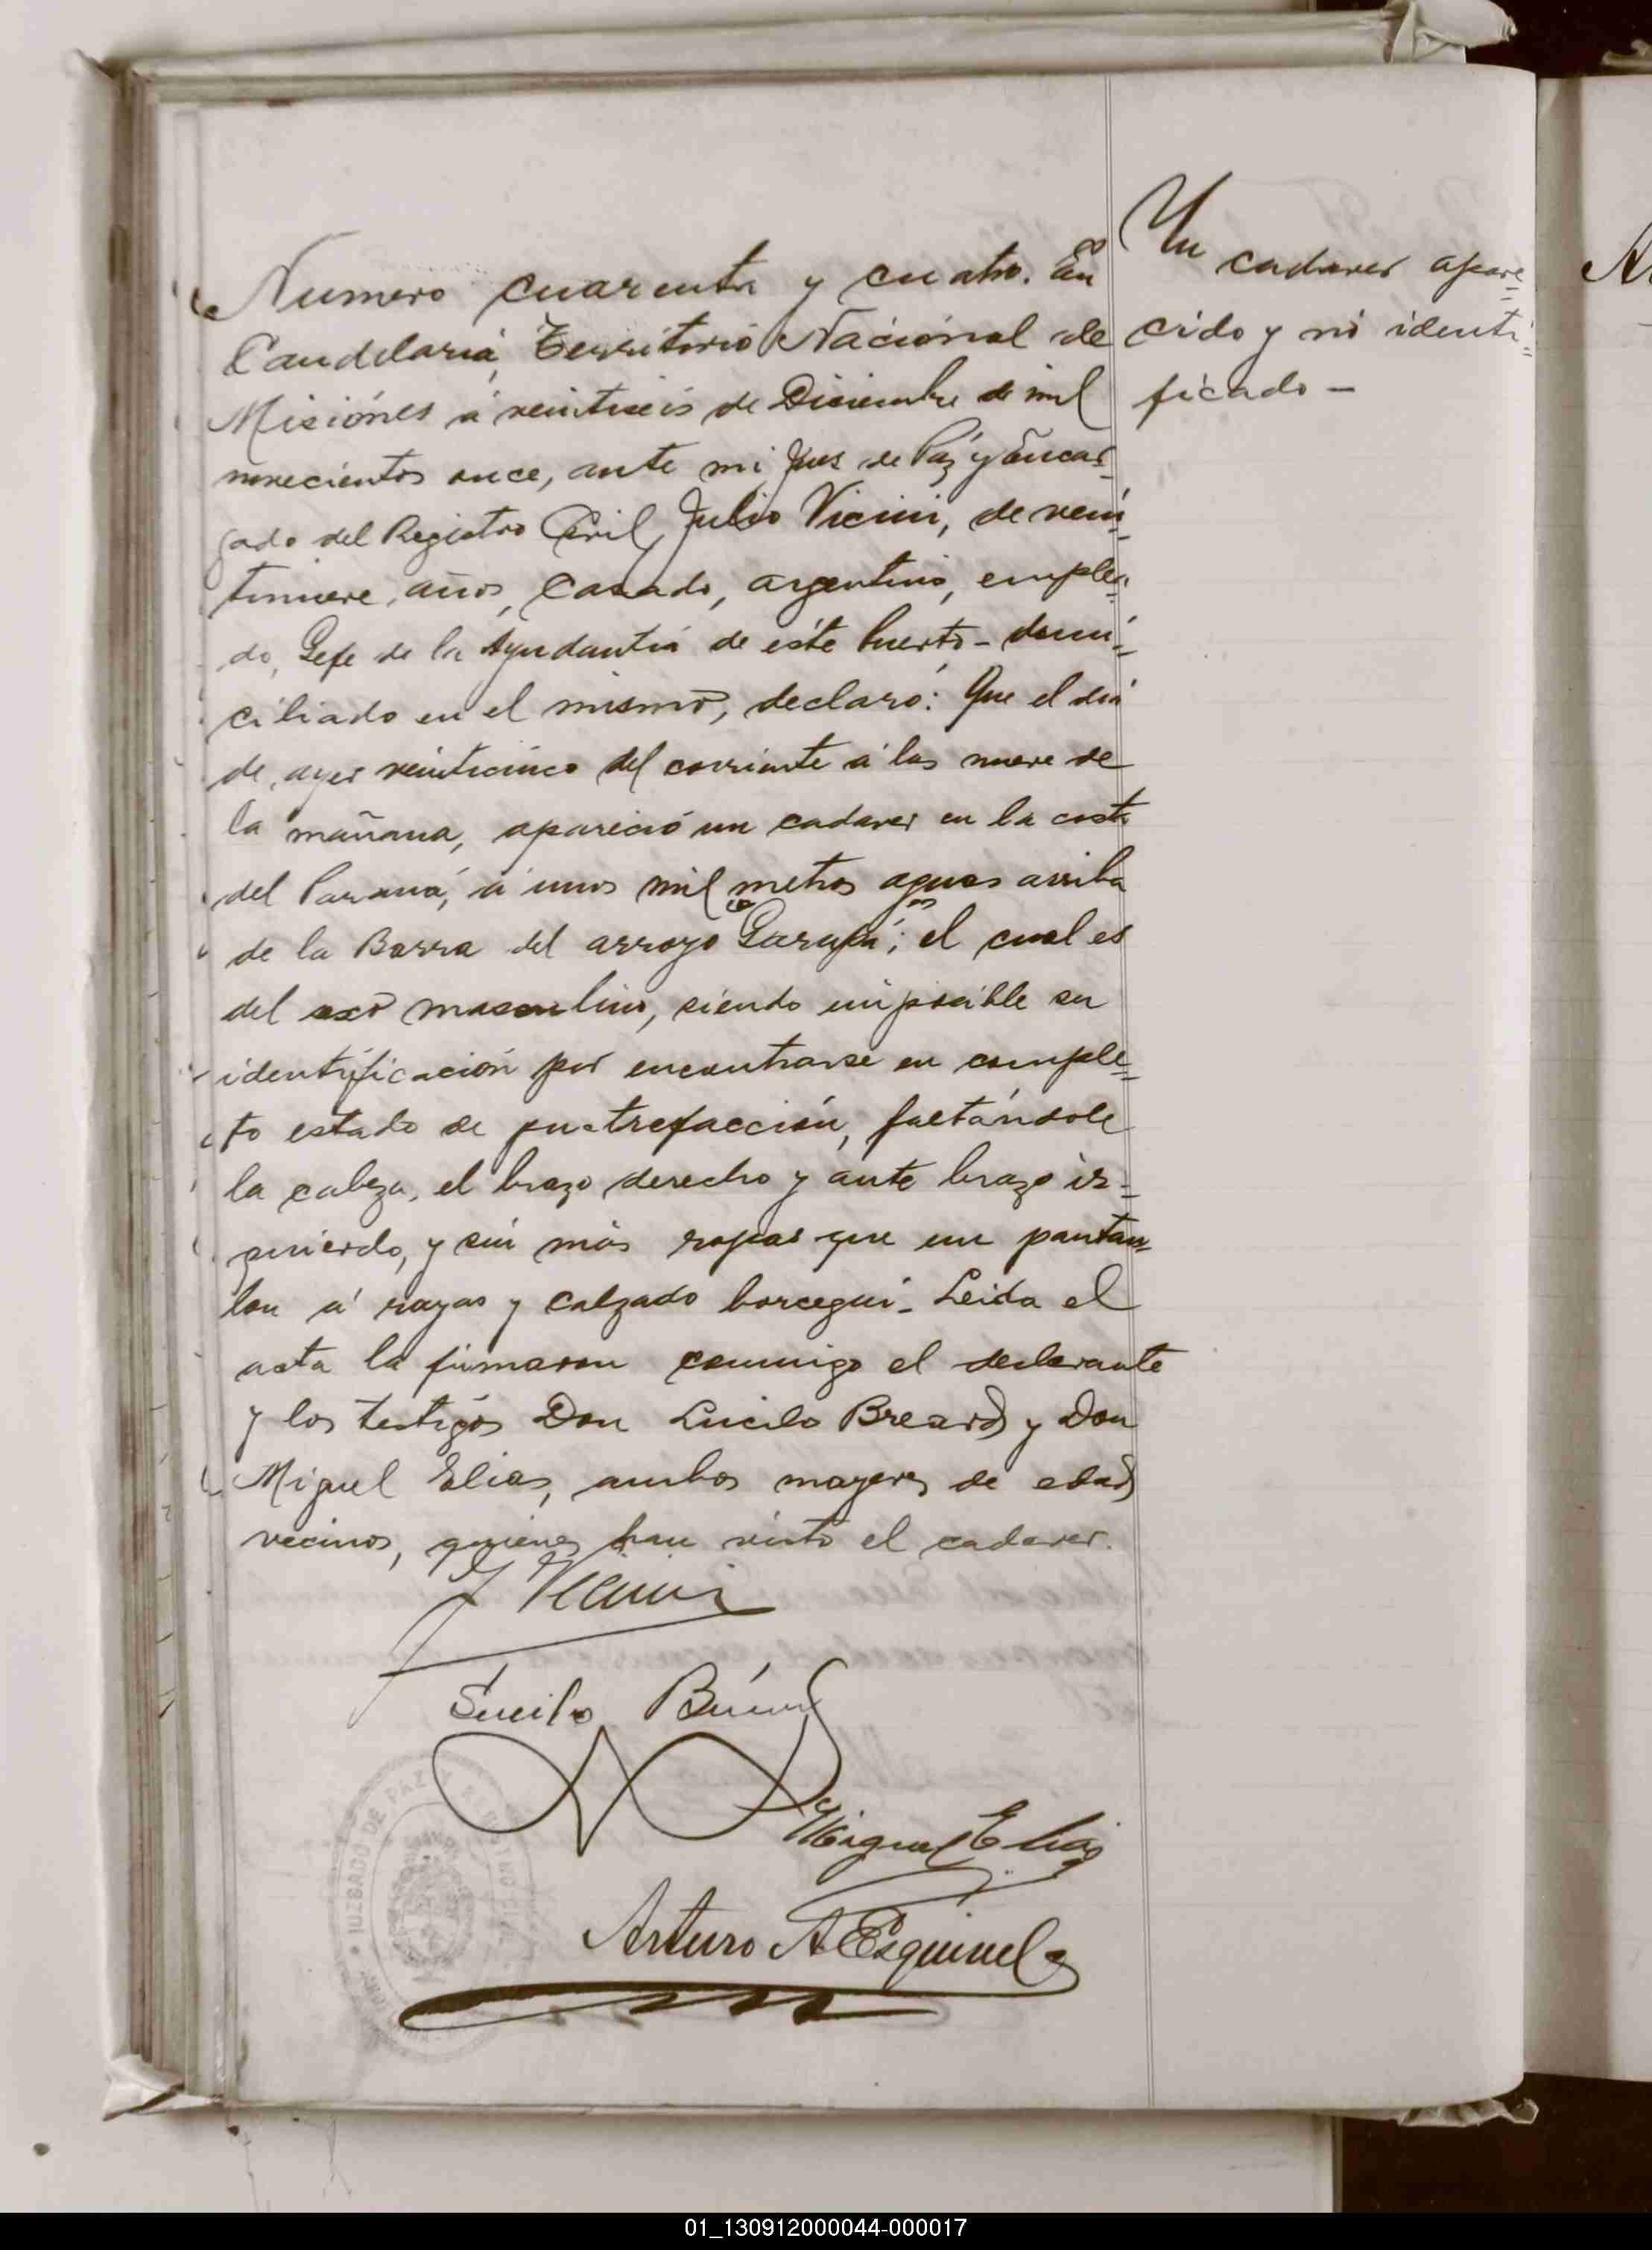 Un cadaver apare=
cido y nó identi=
ficado -
Numero cuarenta y cuatro. En
Candelaria, Territorio Nacional de
Misiónes á veintiseis de Diciembre de mil
novecientos once, ante mi Jues de Páz y Encar=
gado del Registro Civil, Julio Vicini, de vein=
tinueve, años, Casado, argentino, emplea=
do, Gefe de la Ayudantia de éste Puerto - domi=
ciliado en el mismo, declaró: Que el dia
de ayer veinticinco del corriente á las nueve de
la mañana, apareció un cadaver en la costa
del Paraná, á unos mil metros aguas arriba
de la Barra del arroyo Garupá; el cual es
del sexo masculino, siendo imposible su
identificación por encontrarse en comple=
to estado de putrefacción, faltándole
la cabeza, el brazo derecho y ante brazo iz=
quierdo, y sin más ropas que un panta=
lon á rayas y calzado borcegui. Leida el
acta la firmaron conmigo el declarante
y los testigos Don Lucilo Breard y Don
Miguel Elias, ambos mayores de edad
vecinos, quienes han visto el cadaver.
J Vicini
Lucilo Breard
Miguel Elias
Arturo A Esquivel
JUZGADO DE PAZ Y REGISTRO CIVIL
01_130912000044-000017